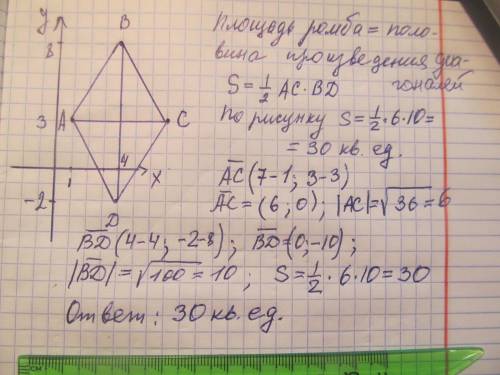 y
B
8
3
A
C
1
4
x
-2
D
Площадь ромба = поло-
вина произведения диа-
гоналей
S = 1/2 AC · BD
По рисунку S = 1/2 · 6 · 10 =
= 30 кв. ед.
A̅C̅ (7-1; 3-3)
A̅C̅ = (6; 0); |AC| = √36 = 6
B̅D̅ (4-4; -2-8); B̅D̅ = (0; -10);
|B̅D̅| = √100 = 10; S = 1/2 · 6 · 10 = 30
Ответ: 30 кв. ед.